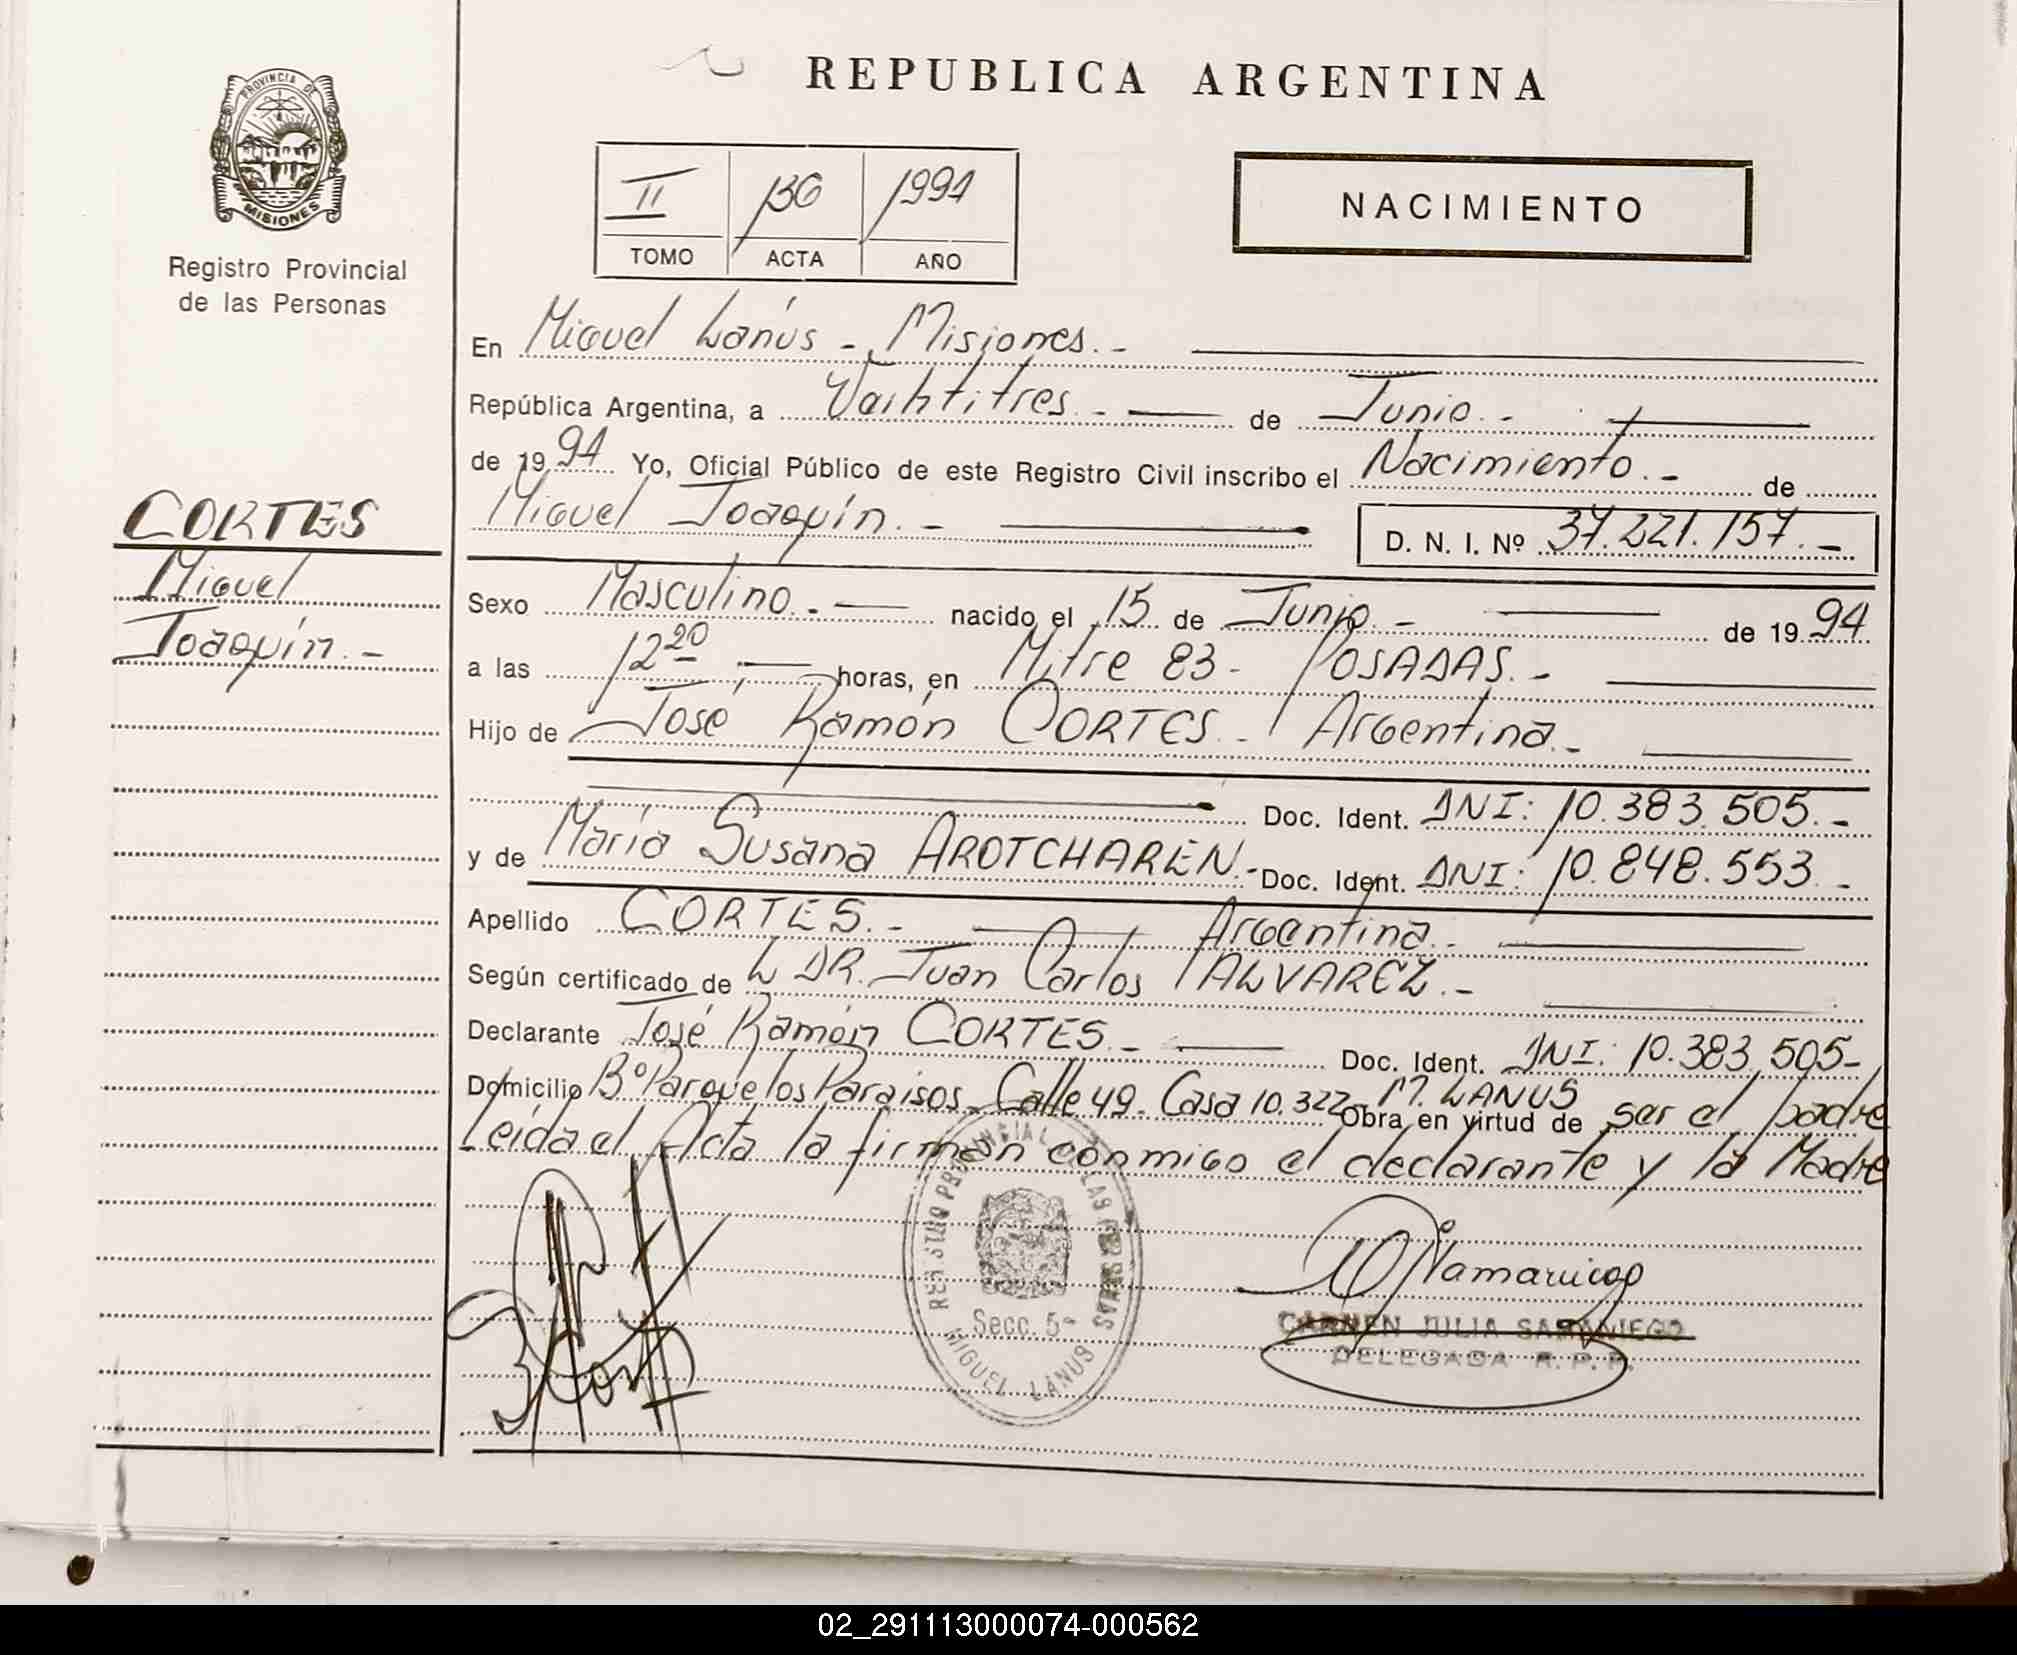 REPUBLICA ARGENTINA
PROVINCIA DE
MISIONES
Registro Provincial
de las Personas
II 130 1994
TOMO ACTA AÑO
NACIMIENTO
En Miguel Lanús - Misiones.-
República Argentina, a Veintitres.- de Junio.-
de 1994 Yo, Oficial Público de este Registro Civil inscribo el Nacimiento.- de
Miguel Joaquín.- D. N. I. Nº 37.221.157.-
CORTES
Miguel
Joaquín.-
Sexo Masculino.- nacido el 15 de Junio.- de 1994
a las 12 20 horas, en Mitre 83 - POSADAS.-
Hijo de José Ramón CORTES.- Argentina.-
Doc. Ident. DNI: 10.383.505.-
y de María Susana AROTCHAREN.- Doc. Ident. DNI: 10.848.553.-
Apellido CORTES.- Argentina.-
Según certificado de L DR. Juan Carlos ALVAREZ.-
Declarante José Ramón CORTES.- Doc. Ident. DNI: 10.383.505-
Domicilio Bº Parque los Paraisos- Calle 49- Casa 10.322- M. LANUS Obra en virtud de ser el padre
Leída el Acta la firman conmigo el declarante y la Madre
REGISTRO PROVINCIAL DE LAS PERSONAS
Secc. 5ª
MIGUEL LANUS
CARMEN JULIA SAMANIEGO
DELEGADA R. P. P.
02_291113000074-000562